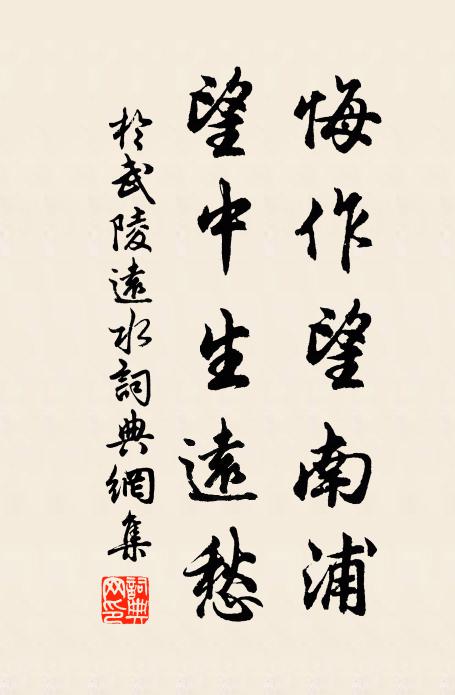 悔作望南浦
望中生遠愁
於武陵遠水詞典網集
詞典
网印